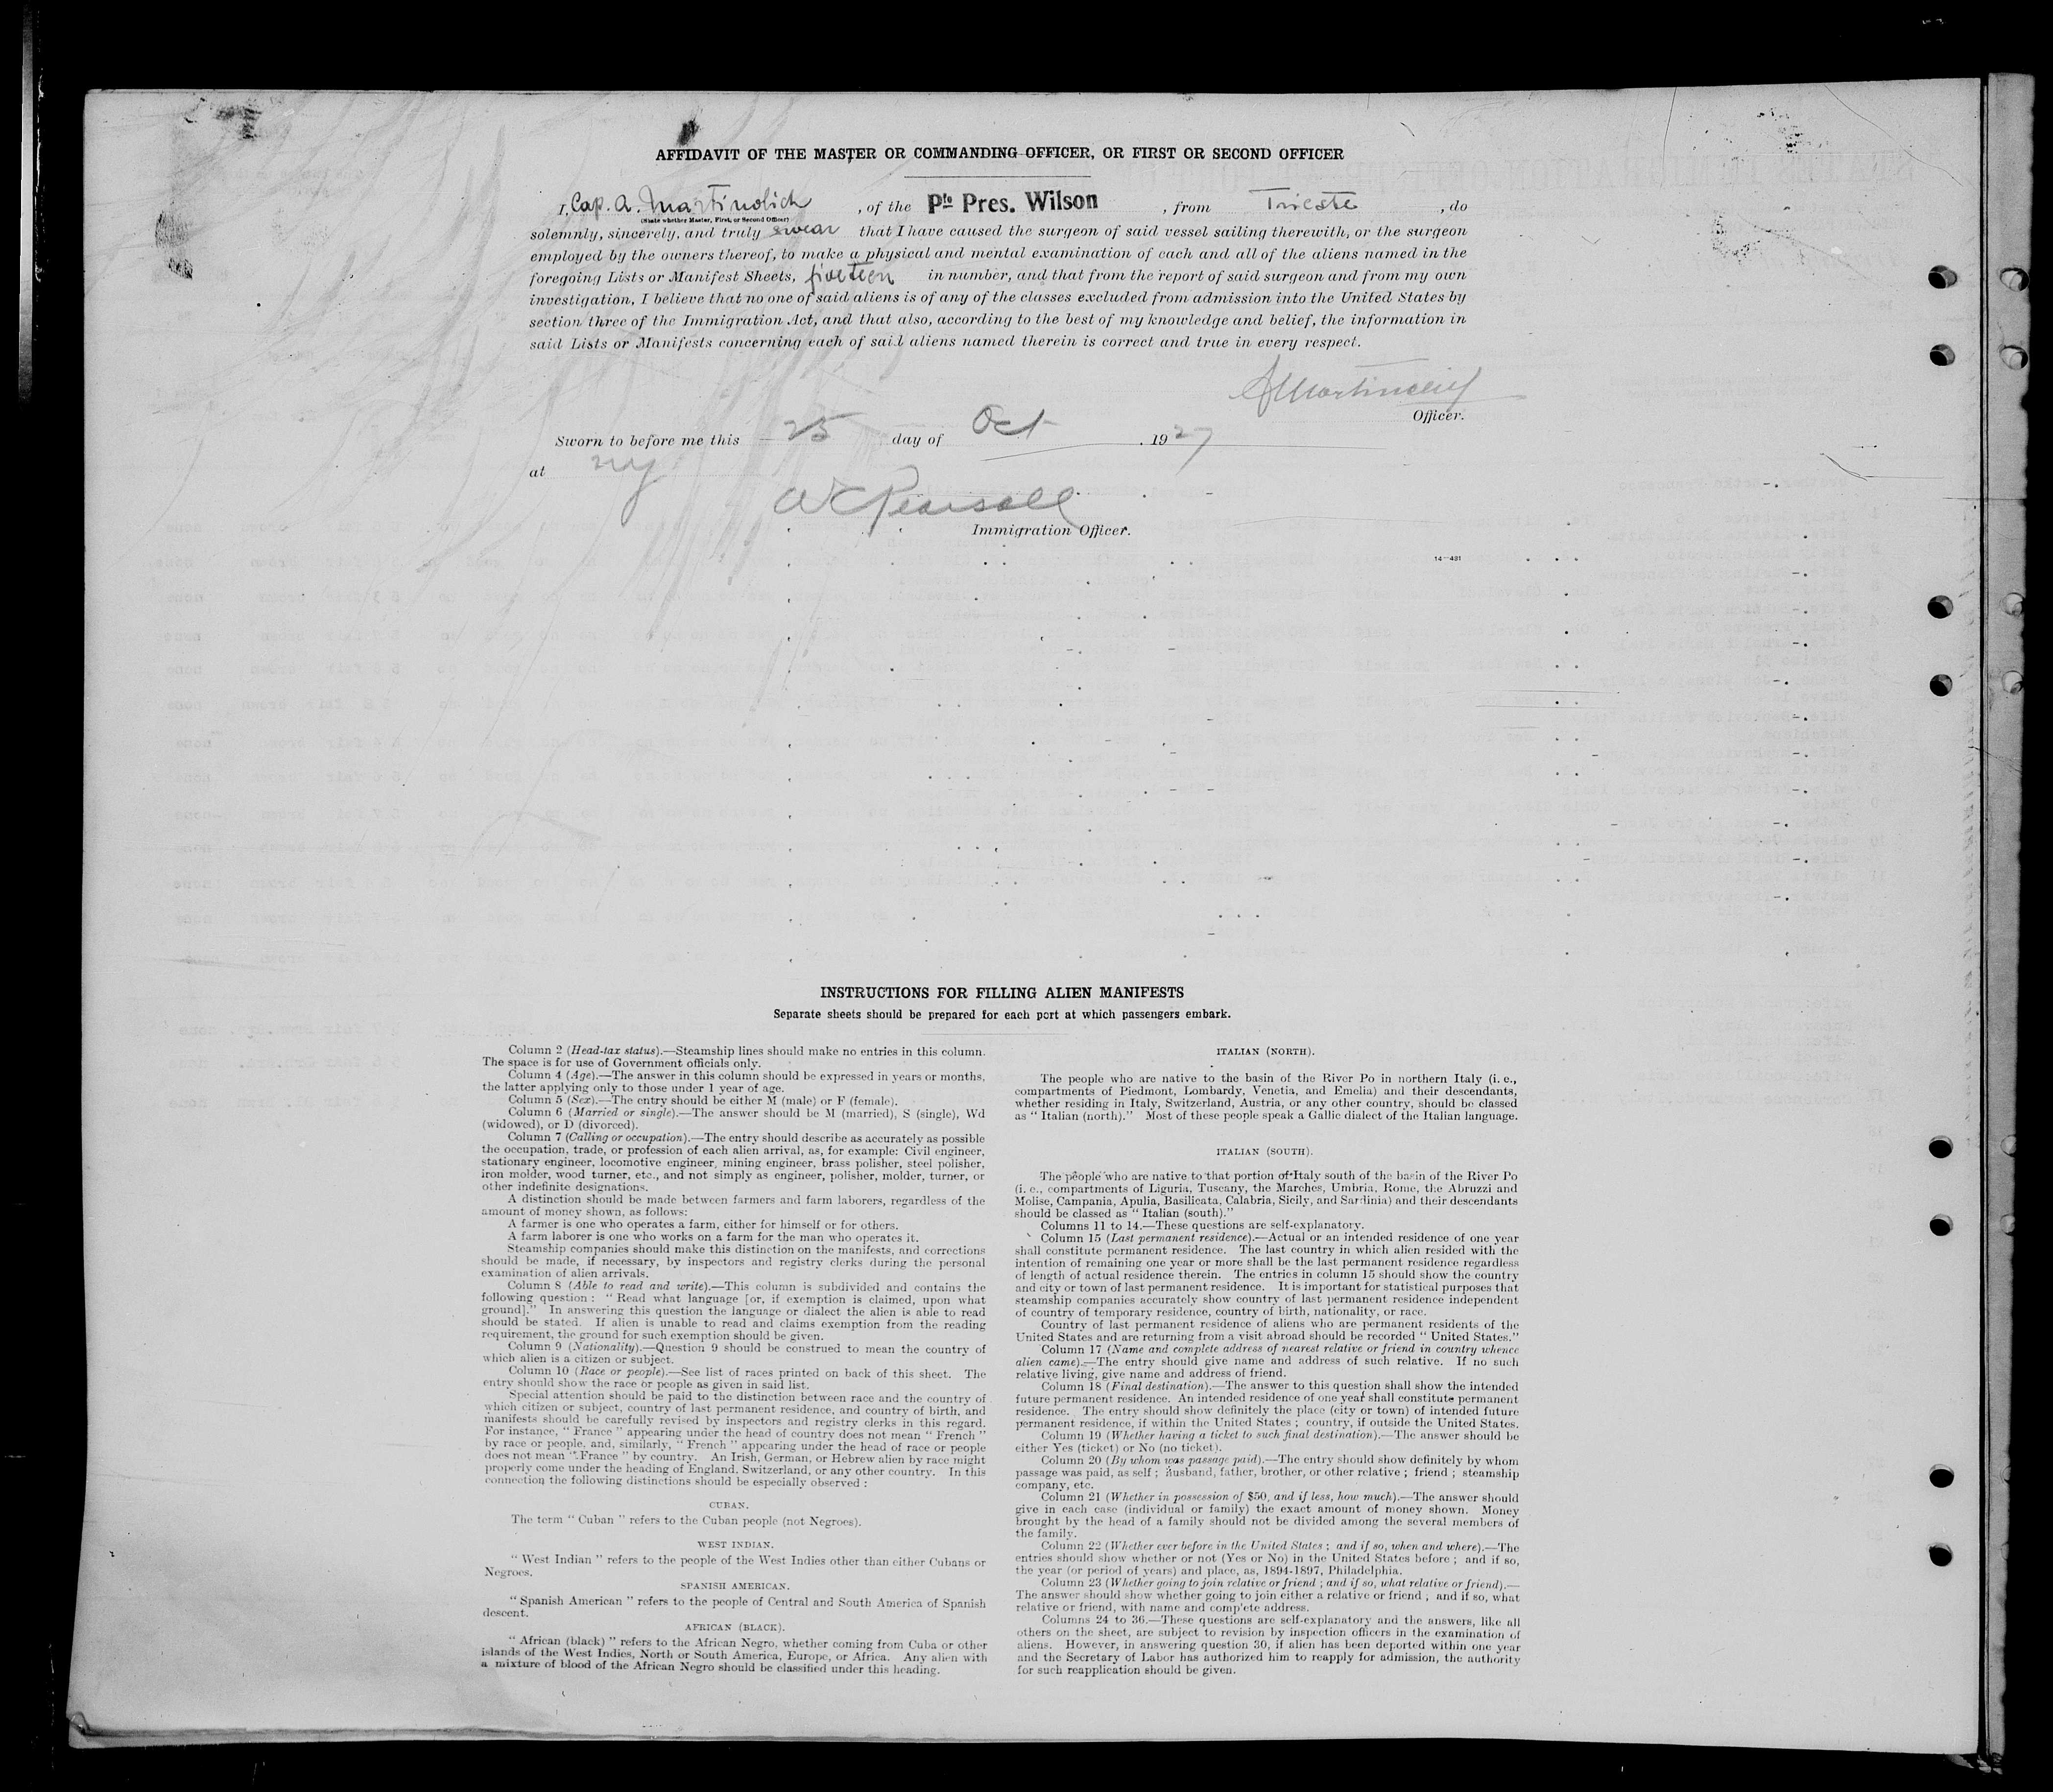 AFFIDAVIT OF THE MASTER OR COMMANDING OFFICER, OR FIRST OR SECOND OFFICER
I, Cap. A. Martinolich, of the Pto Pres. Wilson, from Trieste, do
(State whether Master, First, or Second Officer)
solemnly, sincerely, and truly swear that I have caused the surgeon of said vessel sailing therewith, or the surgeon
employed by the owners thereof, to make a physical and mental examination of each and all of the aliens named in the
foregoing Lists or Manifest Sheets, fiveteen in number, and that from the report of said surgeon and from my own
investigation, I believe that no one of said aliens is of any of the classes excluded from admission into the United States by
section three of the Immigration Act, and that also, according to the best of my knowledge and belief, the information in
said Lists or Manifests concerning each of said aliens named therein is correct and true in every respect.
A Martinolich
Officer.
Sworn to before me this 25 day of Oct, 1927
at NY
W C Pearsall
Immigration Officer.
14—481
INSTRUCTIONS FOR FILLING ALIEN MANIFESTS
Separate sheets should be prepared for each port at which passengers embark.
Column 2 (Head-tax status).—Steamship lines should make no entries in this column.
The space is for use of Government officials only.
Column 4 (Age).—The answer in this column should be expressed in years or months,
the latter applying only to those under 1 year of age.
Column 5 (Sex).—The entry should be either M (male) or F (female).
Column 6 (Married or single).—The answer should be M (married), S (single), Wd
(widowed), or D (divorced).
Column 7 (Calling or occupation).—The entry should describe as accurately as possible
the occupation, trade, or profession of each alien arrival, as, for example: Civil engineer,
stationary engineer, locomotive engineer, mining engineer, brass polisher, steel polisher,
iron molder, wood turner, etc., and not simply as engineer, polisher, molder, turner, or
other indefinite designations.
A distinction should be made between farmers and farm laborers, regardless of the
amount of money shown, as follows:
A farmer is one who operates a farm, either for himself or for others.
A farm laborer is one who works on a farm for the man who operates it.
Steamship companies should make this distinction on the manifests, and corrections
should be made, if necessary, by inspectors and registry clerks during the personal
examination of alien arrivals.
Column 8 (Able to read and write).—This column is subdivided and contains the
following question: "Read what language [or, if exemption is claimed, upon what
ground]." In answering this question the language or dialect the alien is able to read
should be stated. If alien is unable to read and claims exemption from the reading
requirement, the ground for such exemption should be given.
Column 9 (Nationality).—Question 9 should be construed to mean the country of
which alien is a citizen or subject.
Column 10 (Race or people).—See list of races printed on back of this sheet. The
entry should show the race or people as given in said list.
Special attention should be paid to the distinction between race and the country of
which citizen or subject, country of last permanent residence, and country of birth, and
manifests should be carefully revised by inspectors and registry clerks in this regard.
For instance, "France" appearing under the head of country does not mean "French"
by race or people, and, similarly, "French" appearing under the head of race or people
does not mean "France" by country. An Irish, German, or Hebrew alien by race might
properly come under the heading of England, Switzerland, or any other country. In this
connection the following distinctions should be especially observed:
CUBAN.
The term "Cuban" refers to the Cuban people (not Negroes).
WEST INDIAN.
"West Indian" refers to the people of the West Indies other than either Cubans or
Negroes.
SPANISH AMERICAN.
"Spanish American" refers to the people of Central and South America of Spanish
descent.
AFRICAN (BLACK).
"African (black)" refers to the African Negro, whether coming from Cuba or other
islands of the West Indies, North or South America, Europe, or Africa. Any alien with
a mixture of blood of the African Negro should be classified under this heading.
ITALIAN (NORTH).
The people who are native to the basin of the River Po in northern Italy (i. e.,
compartments of Piedmont, Lombardy, Venetia, and Emelia) and their descendants,
whether residing in Italy, Switzerland, Austria, or any other country, should be classed
as "Italian (north)." Most of these people speak a Gallic dialect of the Italian language.
ITALIAN (SOUTH).
The people who are native to that portion of Italy south of the basin of the River Po
(i. e., compartments of Liguria, Tuscany, the Marches, Umbria, Rome, the Abruzzi and
Molise, Campania, Apulia, Basilicata, Calabria, Sicily, and Sardinia) and their descendants
should be classed as "Italian (south)."
Columns 11 to 14.—These questions are self-explanatory.
Column 15 (Last permanent residence).—Actual or an intended residence of one year
shall constitute permanent residence. The last country in which alien resided with the
intention of remaining one year or more shall be the last permanent residence regardless
of length of actual residence therein. The entries in column 15 should show the country
and city or town of last permanent residence. It is important for statistical purposes that
steamship companies accurately show country of last permanent residence independent
of country of temporary residence, country of birth, nationality, or race.
Country of last permanent residence of aliens who are permanent residents of the
United States and are returning from a visit abroad should be recorded "United States."
Column 17 (Name and complete address of nearest relative or friend in country whence
alien came).—The entry should give name and address of such relative. If no such
relative living, give name and address of friend.
Column 18 (Final destination).—The answer to this question shall show the intended
future permanent residence. An intended residence of one year shall constitute permanent
residence. The entry should show definitely the place (city or town) of intended future
permanent residence, if within the United States; country, if outside the United States.
Column 19 (Whether having a ticket to such final destination).—The answer should be
either Yes (ticket) or No (no ticket).
Column 20 (By whom was passage paid).—The entry should show definitely by whom
passage was paid, as self; husband, father, brother, or other relative; friend; steamship
company, etc.
Column 21 (Whether in possession of $50, and if less, how much).—The answer should
give in each case (individual or family) the exact amount of money shown. Money
brought by the head of a family should not be divided among the several members of
the family.
Column 22 (Whether ever before in the United States; and if so, when and where).—The
entries should show whether or not (Yes or No) in the United States before; and if so,
the year (or period of years) and place, as, 1894-1897, Philadelphia.
Column 23 (Whether going to join relative or friend; and if so, what relative or friend).—
The answer should show whether going to join either a relative or friend; and if so, what
relative or friend, with name and complete address.
Columns 24 to 36.—These questions are self-explanatory and the answers, like all
others on the sheet, are subject to revision by inspection officers in the examination of
aliens. However, in answering question 30, if alien has been deported within one year
and the Secretary of Labor has authorized him to reapply for admission, the authority
for such reapplication should be given.